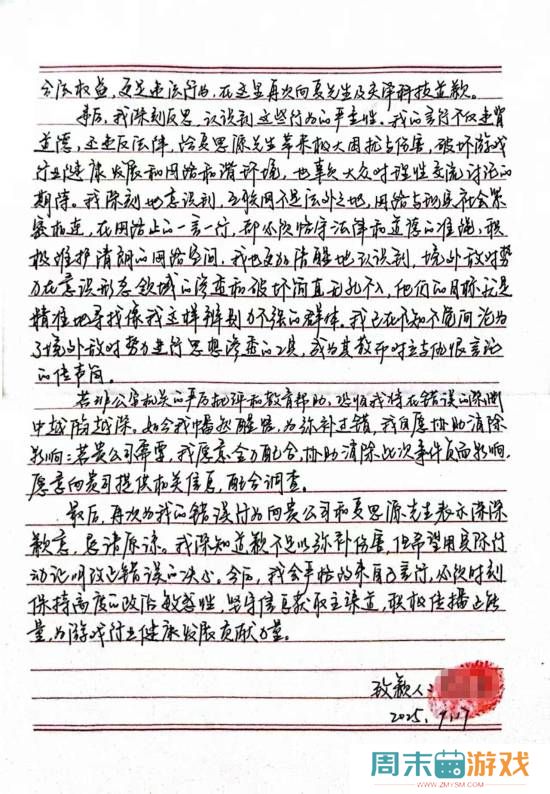 合法权益，更是违法行为，在这里再次向夏先生及灵泽科技道歉。
事后，我深刻反思，认识到这些行为的严重性。我的言行不仅违背
道德，还违反法律，给夏思源先生带来极大困扰与伤害，破坏游戏
行业健康发展和网络和谐环境，也辜负大众对理性交流讨论的
期待。我深刻地意识到，互联网不是法外之地，网络与现实社会紧
密相连，在网络上的一言一行，都必须恪守法律和道德的准绳，积
极维护清朗的网络空间。我也更加清醒地认识到，境外敌对势
力在意识形态领域的渗透和破坏简直无孔不入，他们的目标就是
精准地寻找像我这样辨别力不强的群体。我已在不知不觉间沦为
了境外敌对势力进行思想渗透的工具，成为其散布对立与仇恨言论
的传声筒。
若非公安机关的严厉批评和教育帮助，恐怕我将在错误的深渊
中越陷越深。如今我幡然醒悟，为弥补过错，我自愿协助清除
影响：若贵公司需要，我愿意全力配合，协助清除此次事件负面影响，
愿意向贵司提供相关信息，配合调查。
最后，再次为我的错误行为向贵公司和夏思源先生表示深深
歉意，恳请原谅。我深知道歉不足以弥补伤害，但希望用实际行
动证明改正错误的决心。今后，我会严格约束自己言行，必须时刻
保持高度的政治敏感性，坚守信息获取主渠道，积极传播正能
量，为游戏行业健康发展贡献力量。
致歉人：
2025.9.17
周末游戏
WWW.ZMYSM.COM